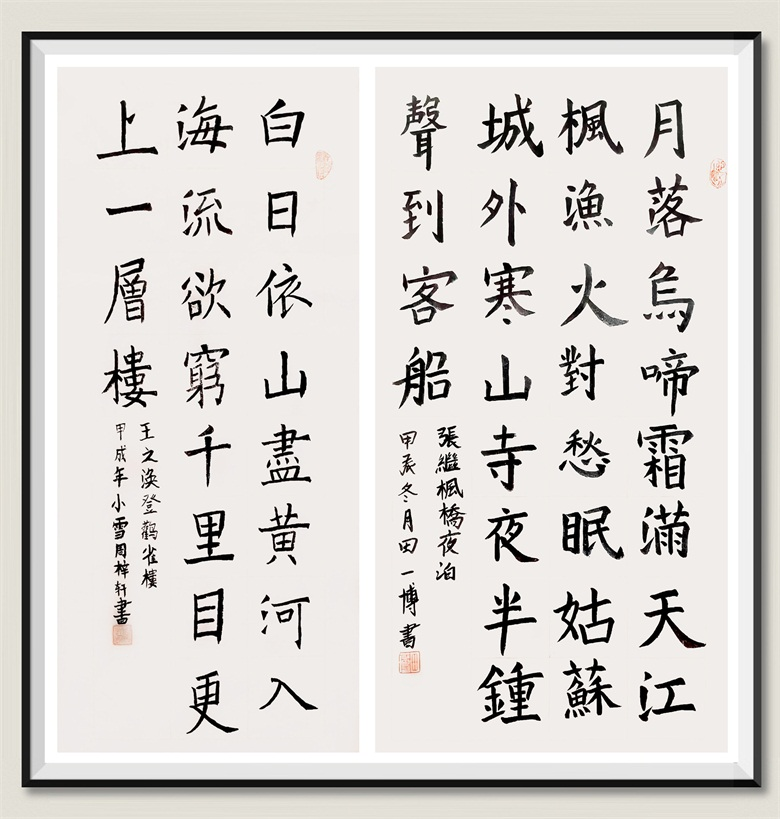 月落烏啼霜滿天江
楓漁火對愁眠姑蘇
城外寒山寺夜半鍾
聲到客船
張繼楓橋夜泊
甲辰冬月田一博書
白日依山盡黄河入
海流欲窮千里目更
上一層樓
王之渙登鸛雀樓
甲成年小雪周梓轩書